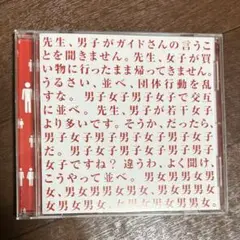 先生、男子がガイドさんの言うこ
とを聞きません。先生、女子が買
い物に行ったまま帰ってきません。
うるさい、並べ、団体行動を乱
すな。男子女子男子女子で交互
に並べ。先生、男子が若干女子
より多いです。そうか、だったら、
男子女子男子男子女子男子男子
だ。男子男子女子男子男子女子男子
女子ですね？違うわ、よく聞け、
こうやって並べ。男女男男女男
女、男女男男女男女、男女男男女
男女男女、男女男男女男女。